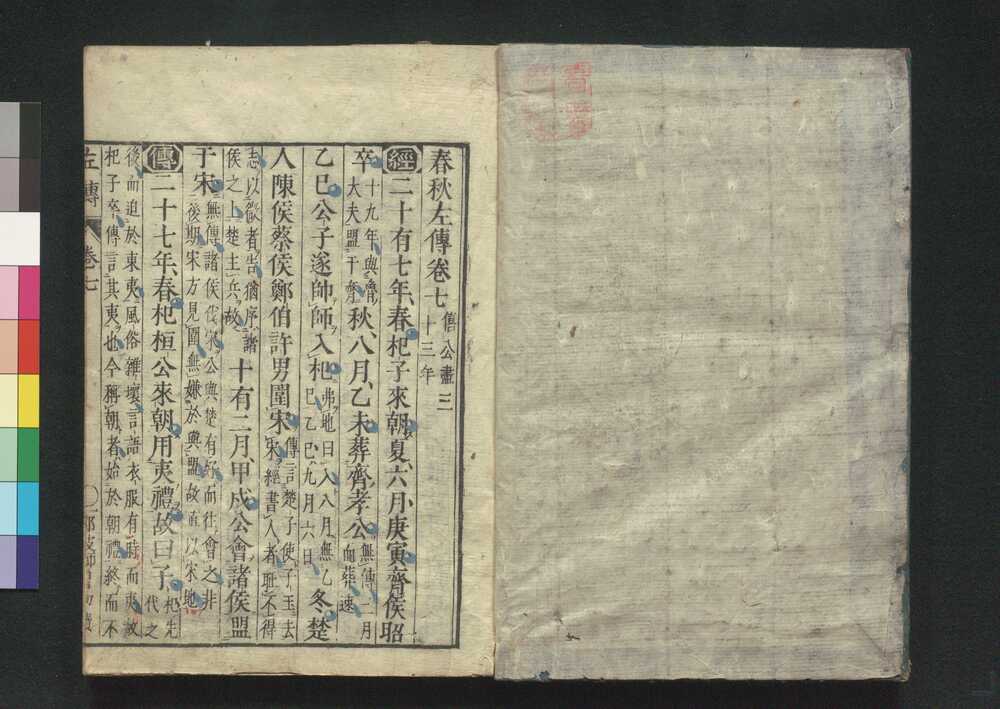 春秋左傳卷七 僖公盡三十三年
經 二十有七年春杞子來朝夏六月庚寅齊侯昭
卒 十九年與齊大夫盟于齊 秋八月乙未葬齊孝公 無傳二月而葬速
乙巳公子遂帥師入杞 弗地曰入八月無乙巳乙巳九月六日 冬楚
人陳侯蔡侯鄭伯許男圍宋 傳言楚子使子玉去宋經書人者恥不得
志以微者告猶序諸侯之上楚主兵故 十有二月甲戌公會諸侯盟
于宋 無傳諸侯伐宋公與楚有好而往會之非後期宋方見圍無嫌於與盟故直以宋地
傳 二十七年春杞桓公來朝用夷禮故曰子 杞先代之
後而迫於東夷風俗雜壞言語衣服有時而夷故
杞子卒傳言其夷也今稱朝者始於朝禮終而不
左傳 卷七